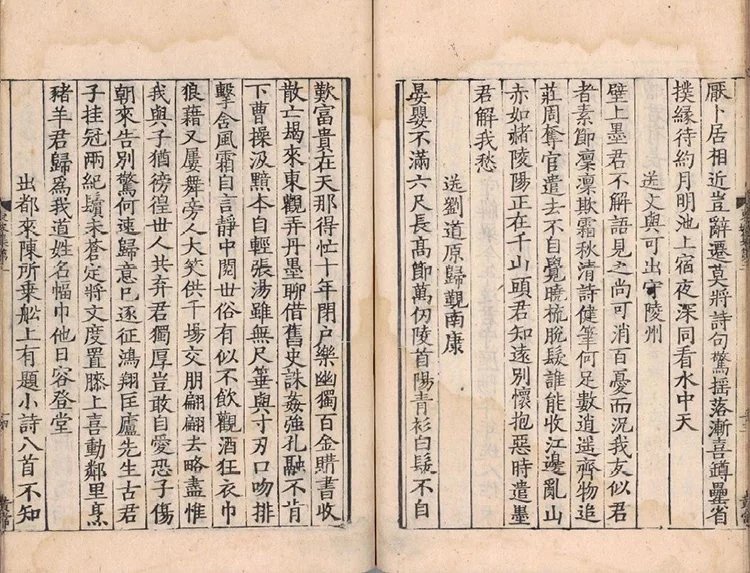 厭卜居相近豈辭遷莫將詩句驚搖落漸喜罇罍省
撲緣待約月明池上宿夜深同看水中天
送文與可出守陵州
壁上墨君不解語見之尚可消百憂而況我友似君
者素節凛凛欺霜秋清詩健筆何足數逍遥齊物追
莊周奪官遣去不自覺曉梳脫髮誰能收江邊亂山
赤如赭陵陽正在千山頭君知遠别懷抱惡時遣墨
君解我愁
送劉道原歸覲南康
晏嬰不滿六尺長髙節萬仞陵首陽青衫白髮不自
歎富貴在天那得忙十年閉户樂幽獨百金購書收
散亡朅來東觀弄丹墨聊借舊史誅姦強孔融不肯
下曹操汲黯本自輕張湯雖無尺箠與寸刃口吻排
擊含風霜自言靜中閱世俗有似不飲觀酒狂衣巾
狼藉又屢舞旁人大笑供千場交朋翩翩去略盡惟
我與子猶徬徨世人共弃君獨厚豈敢自愛恐子傷
朝來告别驚何速歸意已逐征鴻翔匡廬先生古君
子挂冠兩紀鬢未蒼定將文度置膝上喜動鄰里烹
豬羊君歸爲我道姓名幅巾他日容登堂
出都來陳所乗船上有題小詩八首不知